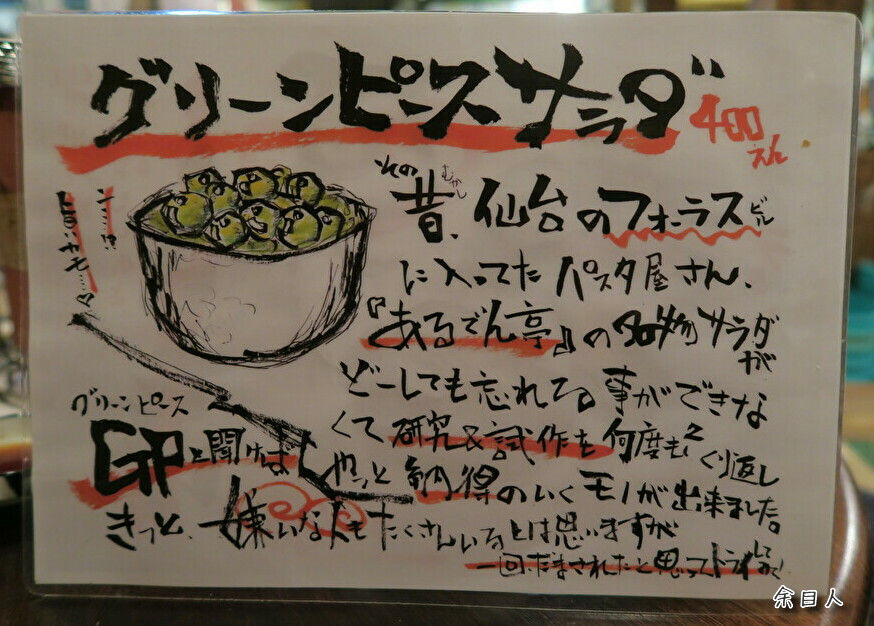 グリーンピースサラダ
400えん
その昔、仙台のフォーラスビル
むかし
に入ってたパスタ屋さん、
『あるでん亭』の名物サラダが
どーしても忘れる事ができな
くて研究&試作を何度も2くり返し
やっと納得のいくモノが出来ました。
グリーンピース
GPと聞けば
きっと、嫌いな人もたくさんいるとは思いますが
一回だまされたと思ってトライしてみて!
余目人